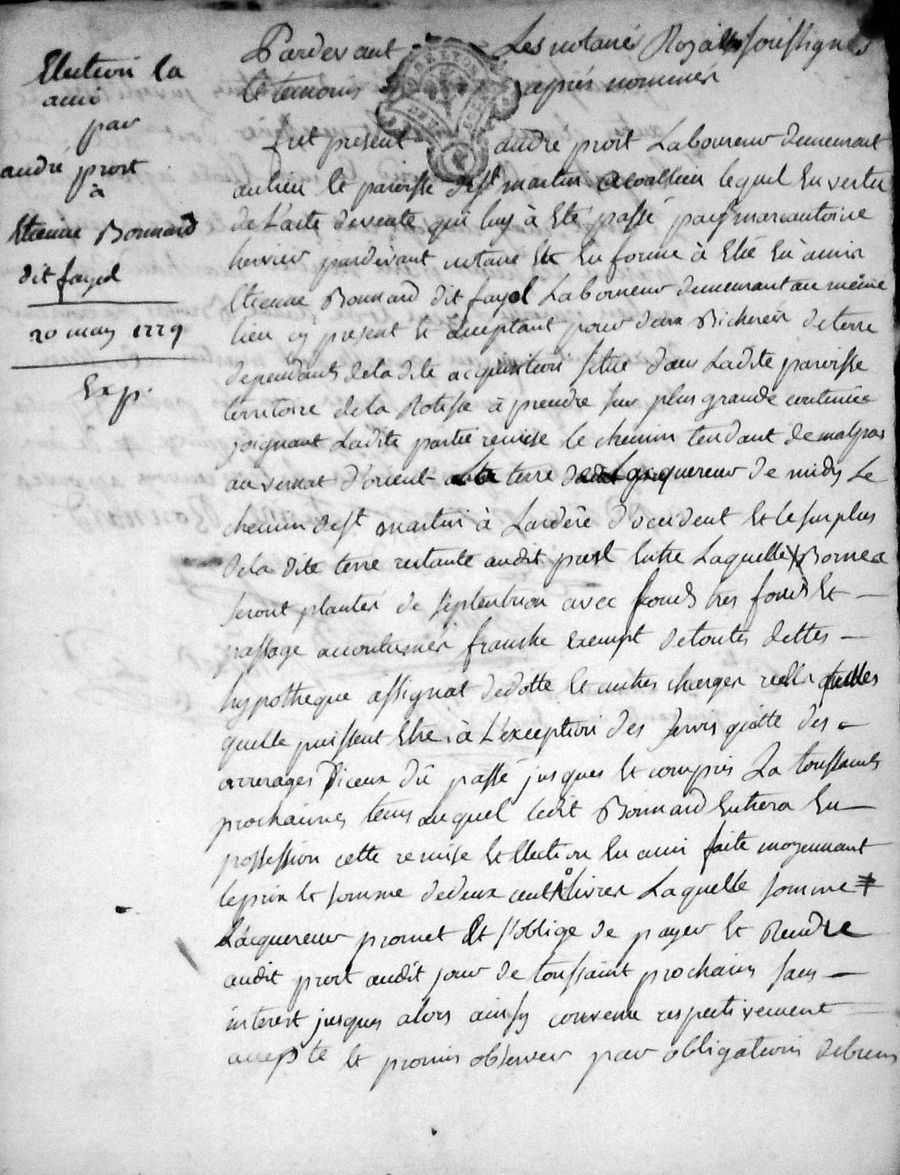 Election la
ami
par
andré prost
à
Etienne Bonnard
dit fayol
20 may 1779
Exp.
Pardevant Les notaires Royaux soussignés
et temoins après nommés
Fut présent andré prost Laboureur demeurant
au lieu et paroisse de st martin lequel En vertu
de L'acte de vente qui luy à Eté passé par marc antoine
hervier pardevant notaire En forme à Elû En amis
Etienne Bonnard dit fayol Laboureur demeurant au même
lieu cy présent et acceptant pour deux Bicherées de terre
dependants de la dite acquisition située dans Ladite paroisse
territoire de la Rotisse à prendre sur plus grande contenüe
joignant Ladite partie remise le chemin tendant de malpas
au vernat d'orient terre acquereur de midy Le
chemin de st martin à Lardére d'occident Et le surplus
de la dite terre restante audit prost Entre Laquelle Bornes
seront plantés de septentrion avec fonds tres fonds Et —
passage accoutumés franche exempt de toutes dettes —
hypotheque assignat de dotte Et autres charges réelles quelles
quelle puissent Etre à L'exception des servis quitte des —
arrerages D'iceux du passé jusques Et compris La toussaints
prochaines tems auquel ledit Bonnard Entrera En —
possession cette remise Et Election En ami faite moyennant
le prix Et somme de deux cent livres Laquelle somme #
L'acquereur promet Et s'oblige de payer Et Rendre
audit prost audit jour de toussaint prochains sans —
interest jusques alors ainsy convenu respectivement —
accepté Et promis observer par obligations de biens